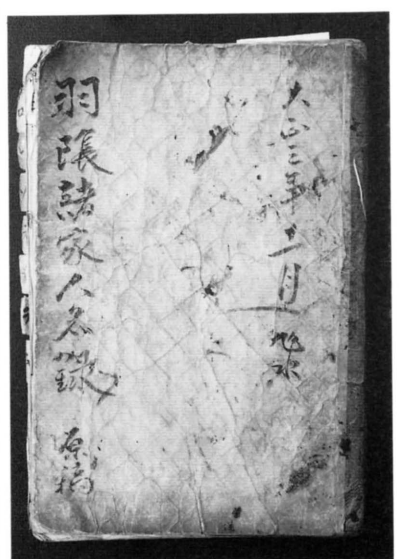 大正三年二月
羽陽諸家人名録 原稿